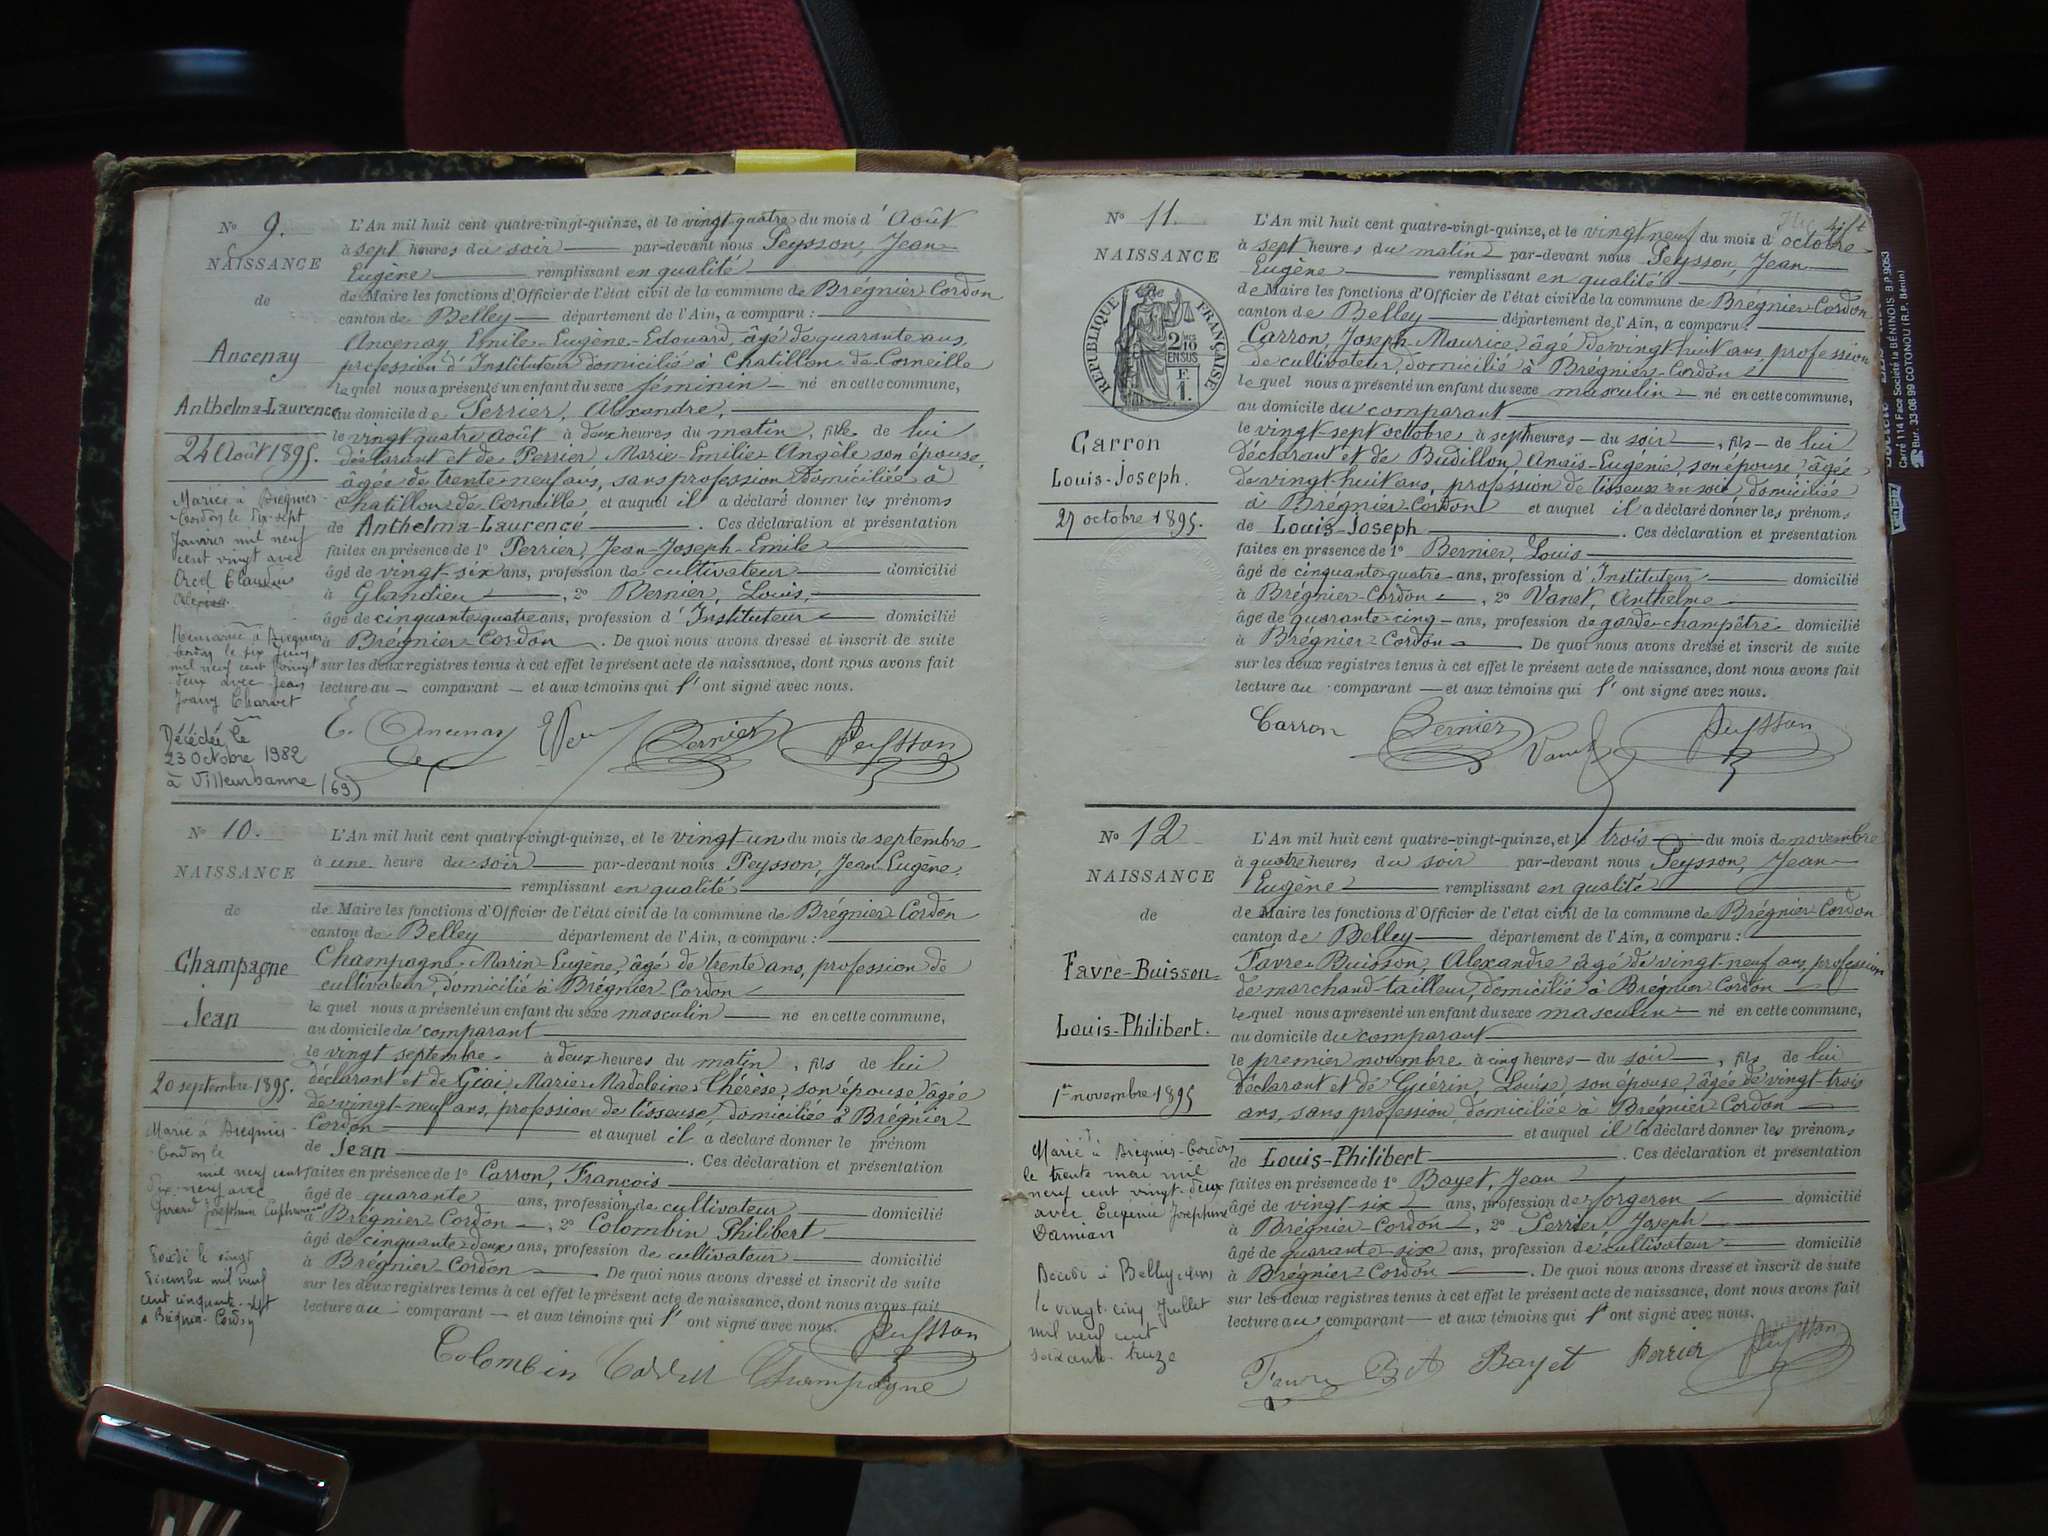 N° 9.
NAISSANCE
de
Ancenay
Anthelma-Laurence
24 Août 1895.
Mariée à Brégnier-
Cordon le dix-sept
Janvier mil neuf
cent vingt avec
Orcel Claudius
Remariée à Brégnier
Cordon le six Juin
mil neuf cent vingt
deux avec Jean
Joany Charvet
Décédée le
23 Octobre 1982
à Villeurbanne (69)
L'An mil huit cent quatre-vingt-quinze, et le vingt quatre du mois d'Août
à sept heures du soir par-devant nous Peysson, Jean-
Eugène remplissant en qualité
de Maire les fonctions d'Officier de l'état civil de la commune de Brégnier-Cordon
canton de Belley département de l'Ain, a comparu :
Ancenay Emile-Eugène-Edouard, âgé de quarante ans,
profession d'Instituteur domicilié à Chatillon-de-Corneille
lequel nous a présenté un enfant du sexe féminin né en cette commune,
au domicile de Perrier, Alexandre,
le vingt quatre Août à deux heures du matin, fille de lui
déclarant et de Perrier Marie-Emilie-Angèle son épouse,
âgée de trente neuf ans, sans profession domiciliée à
Chatillon-de-Corneille, et auquel il a déclaré donner les prénoms
de Anthelma-Laurence. Ces déclaration et présentation
faites en présence de 1° Perrier, Jean-Joseph-Emile
âgé de vingt-six ans, profession de cultivateur domicilié
à Glandieu, 2° Bernier, Louis,
âgé de cinquante quatre ans, profession d'Instituteur domicilié
à Brégnier-Cordon. De quoi nous avons dressé et inscrit de suite
sur les deux registres tenus à cet effet le présent acte de naissance, dont nous avons fait
lecture au comparant et aux témoins qui l'ont signé avec nous.
E. Ancenay Bernier Peysson
N° 10.
NAISSANCE
de
Champagne
Jean
20 septembre 1895.
Marié à Brégnier-
Cordon le
mil neuf cent
dix-neuf avec
Girerd Joséphine Euphrasie
Décédé le vingt
Décembre mil neuf
cent cinquante-sept
à Brégnier-Cordon
L'An mil huit cent quatre-vingt-quinze, et le vingt-un du mois de septembre
à une heure du soir par-devant nous Peysson, Jean Eugène,
remplissant en qualité
de Maire les fonctions d'Officier de l'état civil de la commune de Brégnier-Cordon
canton de Belley département de l'Ain, a comparu :
Champagne Marin-Eugène, âgé de trente ans, profession de
cultivateur, domicilié à Brégnier-Cordon
lequel nous a présenté un enfant du sexe masculin né en cette commune,
au domicile du comparant
le vingt septembre à deux heures du matin, fils de lui
déclarant et de Giai Marie-Madeleine-Thérèse, son épouse âgée
de vingt-neuf ans, profession de tisseuse, domiciliée à Brégnier-
Cordon et auquel il a déclaré donner le prénom
de Jean. Ces déclaration et présentation
faites en présence de 1° Carron, François
âgé de quarante ans, profession de cultivateur domicilié
à Brégnier-Cordon, 2° Colombin Philibert
âgé de cinquante-deux ans, profession de cultivateur domicilié
à Brégnier-Cordon. De quoi nous avons dressé et inscrit de suite
sur les deux registres tenus à cet effet le présent acte de naissance, dont nous avons fait
lecture au comparant et aux témoins qui l'ont signé avec nous.
Peysson
Colombin Champagne
N° 11.
NAISSANCE
RÉPUBLIQUE FRANÇAISE
2 10 EN SUS
F. 1.
Carron
Louis-Joseph.
27 octobre 1895.
L'An mil huit cent quatre-vingt-quinze, et le vingt neuf du mois d'octobre
à sept heures du matin par-devant nous Peysson, Jean-
Eugène remplissant en qualité
de Maire les fonctions d'Officier de l'état civil de la commune de Brégnier-Cordon
canton de Belley département de l'Ain, a comparu :
Carron, Joseph-Maurice, âgé de vingt huit ans, profession
de cultivateur, domicilié à Brégnier-Cordon
lequel nous a présenté un enfant du sexe masculin né en cette commune,
au domicile du comparant
le vingt-sept octobre à sept heures du soir, fils de lui
déclarant et de Budillon Anaïs-Eugénie, son épouse âgée
de vingt-huit ans, profession de tisseuse en soie, domiciliée
à Brégnier-Cordon et auquel il a déclaré donner les prénoms
de Louis-Joseph. Ces déclaration et présentation
faites en présence de 1° Bernier, Louis
âgé de cinquante quatre ans, profession d'Instituteur domicilié
à Brégnier-Cordon, 2° Vanet, Anthelme
âgé de quarante-cinq ans, profession de garde-champêtre domicilié
à Brégnier-Cordon. De quoi nous avons dressé et inscrit de suite
sur les deux registres tenus à cet effet le présent acte de naissance, dont nous avons fait
lecture au comparant et aux témoins qui l'ont signé avec nous.
Carron Bernier Vanet Peysson
N° 12
NAISSANCE
de
Favre-Buisson
Louis-Philibert.
1er novembre 1895
Marié à Brégnier-Cordon
le trente mai mil
neuf cent vingt-deux
avec Eugénie Joséphine
Damian
Décédé à Belley (Ain)
le vingt-cinq Juillet
mil neuf cent
soixante-treize
L'An mil huit cent quatre-vingt-quinze, et le trois du mois de novembre
à quatre heures du soir par-devant nous Peysson, Jean-
Eugène remplissant en qualité
de Maire les fonctions d'Officier de l'état civil de la commune de Brégnier-Cordon
canton de Belley département de l'Ain, a comparu :
Favre-Buisson, Alexandre âgé de vingt-neuf ans, profession
de marchand-tailleur, domicilié à Brégnier-Cordon
lequel nous a présenté un enfant du sexe masculin né en cette commune,
au domicile du comparant
le premier novembre à cinq heures du soir, fils de lui
déclarant et de Guérin Louise, son épouse âgée de vingt-trois
ans, sans profession domiciliée à Brégnier-Cordon
et auquel il a déclaré donner les prénoms
de Louis-Philibert. Ces déclaration et présentation
faites en présence de 1° Bayet, Jean
âgé de vingt-six ans, profession de forgeron domicilié
à Brégnier-Cordon, 2° Perrier Joseph
âgé de quarante-six ans, profession de cultivateur domicilié
à Brégnier-Cordon. De quoi nous avons dressé et inscrit de suite
sur les deux registres tenus à cet effet le présent acte de naissance, dont nous avons fait
lecture au comparant et aux témoins qui l'ont signé avec nous.
Favre B A Bayet Perrier Peysson
Carré 114 Face Société la BÉNINOIS. B.P. 9053
Bur. 33-08-99 COTONOU (R.P. Bénin)